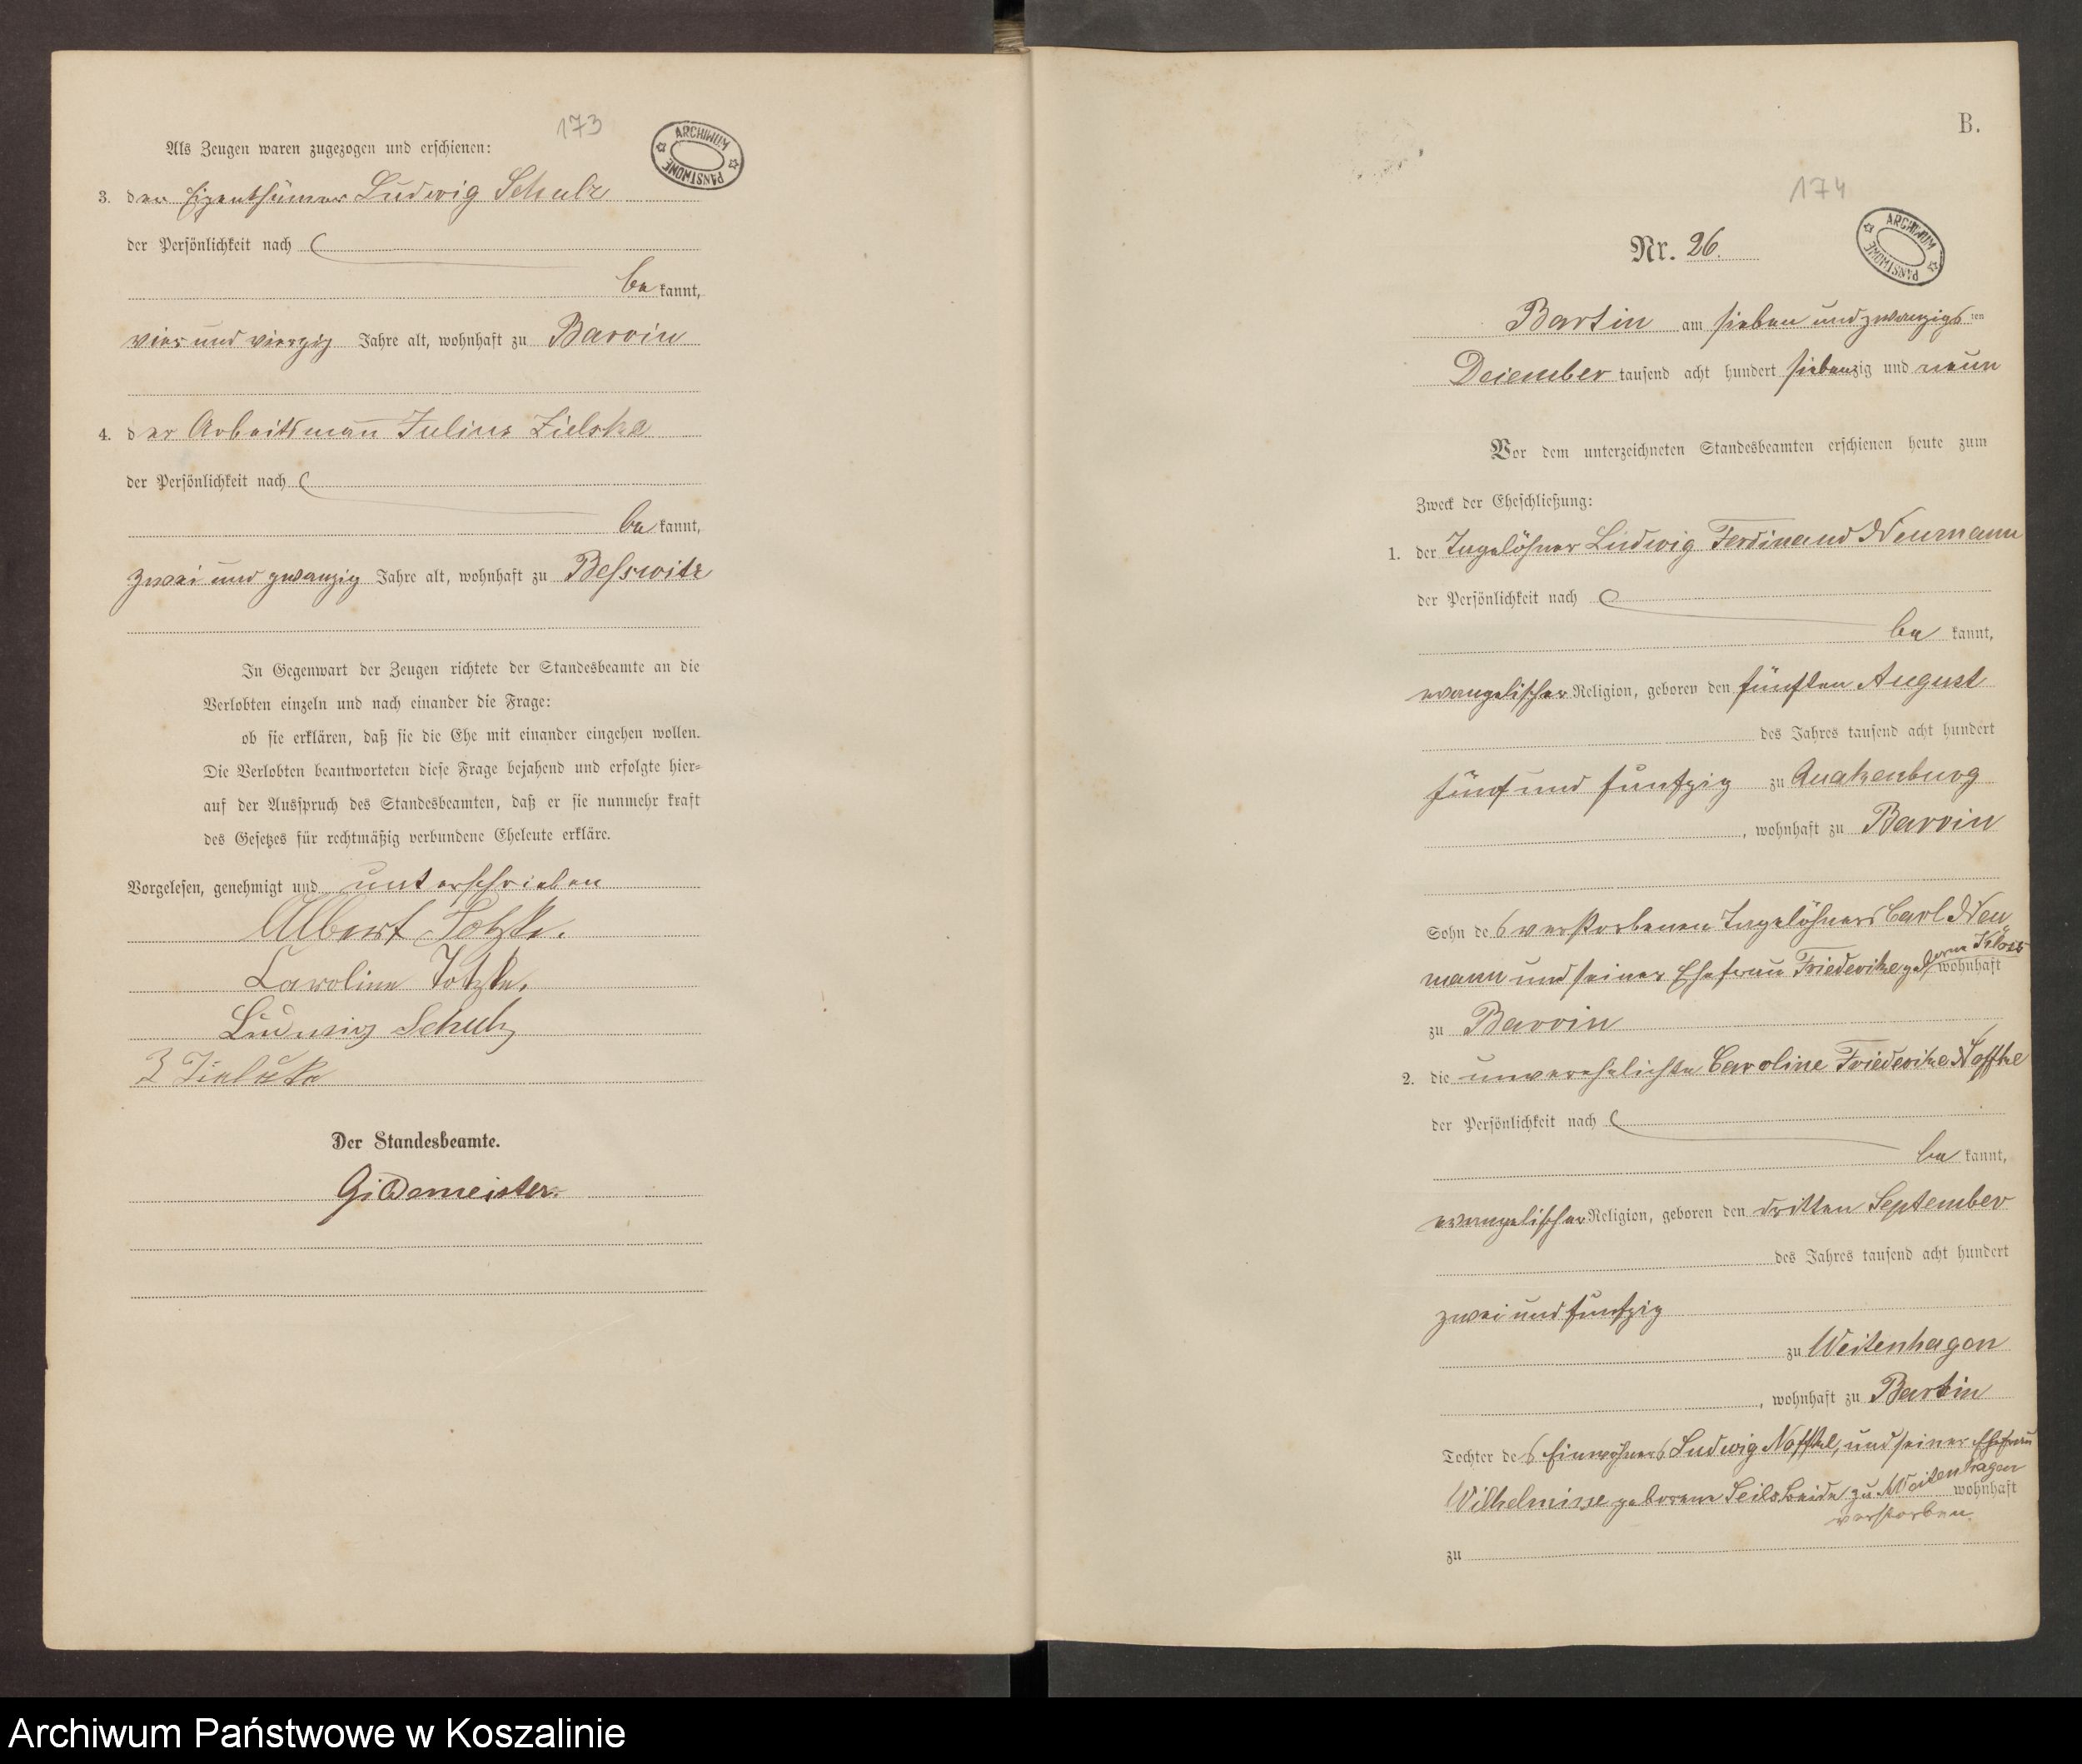 173
ARCHIWUM PAŃSTWOWE
Als Zeugen waren zugezogen und erschienen:
3. der Eigenthümer Ludwig Schulz
der Persönlichkeit nach
be kannt,
vier und vierzig Jahre alt, wohnhaft zu Barvin
4. der Arbeitsmann Julius Zielske
der Persönlichkeit nach
be kannt,
zwei und zwanzig Jahre alt, wohnhaft zu Beſswitz
In Gegenwart der Zeugen richtete der Standesbeamte an die
Verlobten einzeln und nach einander die Frage:
ob sie erklären, daß sie die Ehe mit einander eingehen wollen.
Die Verlobten beantworteten diese Frage bejahend und erfolgte hier=
auf der Ausspruch des Standesbeamten, daß er sie nunmehr kraft
des Gesetzes für rechtmäßig verbundene Eheleute erkläre.
Vorgelesen, genehmigt und unterschrieben
Albert
Caroline
Ludwig Schulz
Der Standesbeamte.
Gildemeister.
B.
174
ARCHIWUM PAŃSTWOWE
Nr. 26.
Bartin am sieben und zwanzigs ten
December tausend acht hundert siebenzig und neun
Vor dem unterzeichneten Standesbeamten erschienen heute zum
Zweck der Eheschließung:
1. der Tagelöhner Ludwig Ferdinand Neumann
der Persönlichkeit nach
be kannt,
evangelischer Religion, geboren den fünften August
des Jahres tausend acht hundert
fünf und funfzig zu Quakenburg
, wohnhaft zu Barvin
Sohn des verstorbenen Tagelöhners Carl Neu
mann und seiner Ehefrau Friederike geborne wohnhaft
zu Barvin
2. die unverehelichte Caroline Friederike Noffke
der Persönlichkeit nach
be kannt,
evangelischer Religion, geboren den dritten September
des Jahres tausend acht hundert
zwei und funfzig
zu Weitenhagen
, wohnhaft zu Bartin
Tochter des Einwohners Ludwig Noffke, und seiner Ehefrau
Wilhelmine geborene zu Weitenhagen wohnhaft
verstorben.
zu
Archiwum Państwowe w Koszalinie